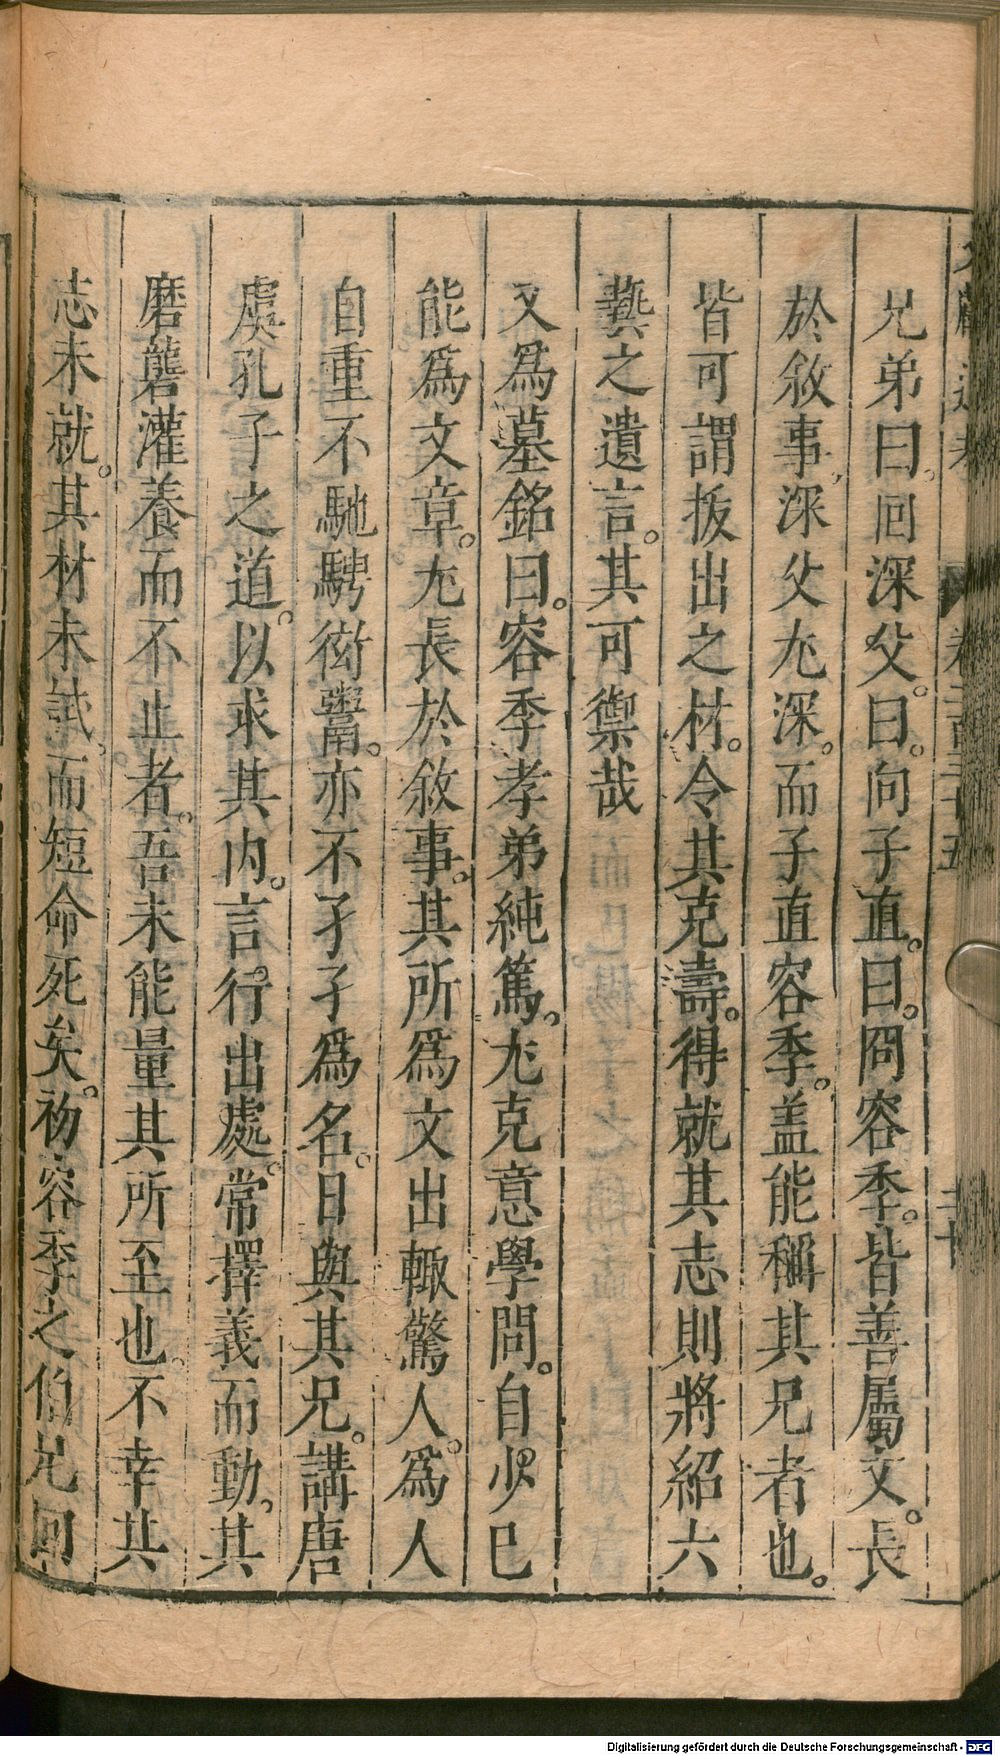 兄弟曰。回深父。曰。向子直。曰。冏容季。皆善屬文。長
於敘事、深父尢深。而子直容季。盖能稱其兄者也。
皆可謂拔出之材。令其克壽。得就其志則將紹六
藝之遺言。其可禦哉
又爲墓銘曰。容季孝弟純篤。尢克意學問。自少已
能爲文章。尢長於敘事。其所爲文出輙驚人。爲人
自重不馳騁衒鬻。亦不孑孑爲名。日與其兄。講唐
虞孔子之道。以求其内。言行出處。常擇義而動。其
磨礱灌養而不止者。吾未能量其所至也。不幸其
志未就。其材未試。而短命死矣。初容季之伯兄回
卷二百三十五
二十
Digitalisierung gefördert durch die Deutsche Forschungsgemeinschaft - DFG